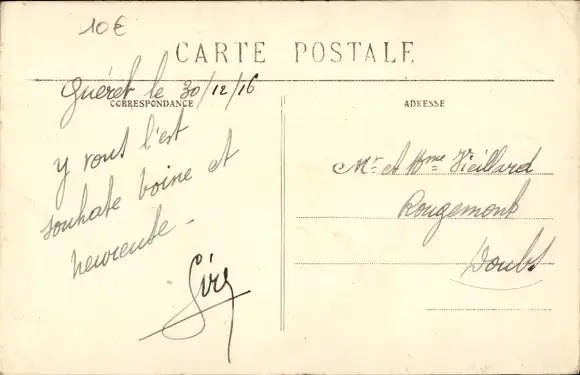 10€
CARTE POSTALE
Guéret le 30/12/16
CORRESPONDANCE
ADRESSE
y vous l'est
souhate boine et
heureuse -
Mr et Mme Vieillard
Rougemont
Doubs